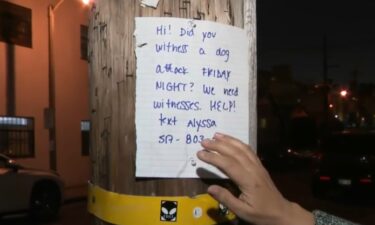 Hi! Did you
witness a dog
attack FRIDAY
NIGHT? We need
witnesses. HELP!
text Alyssa
517-803-